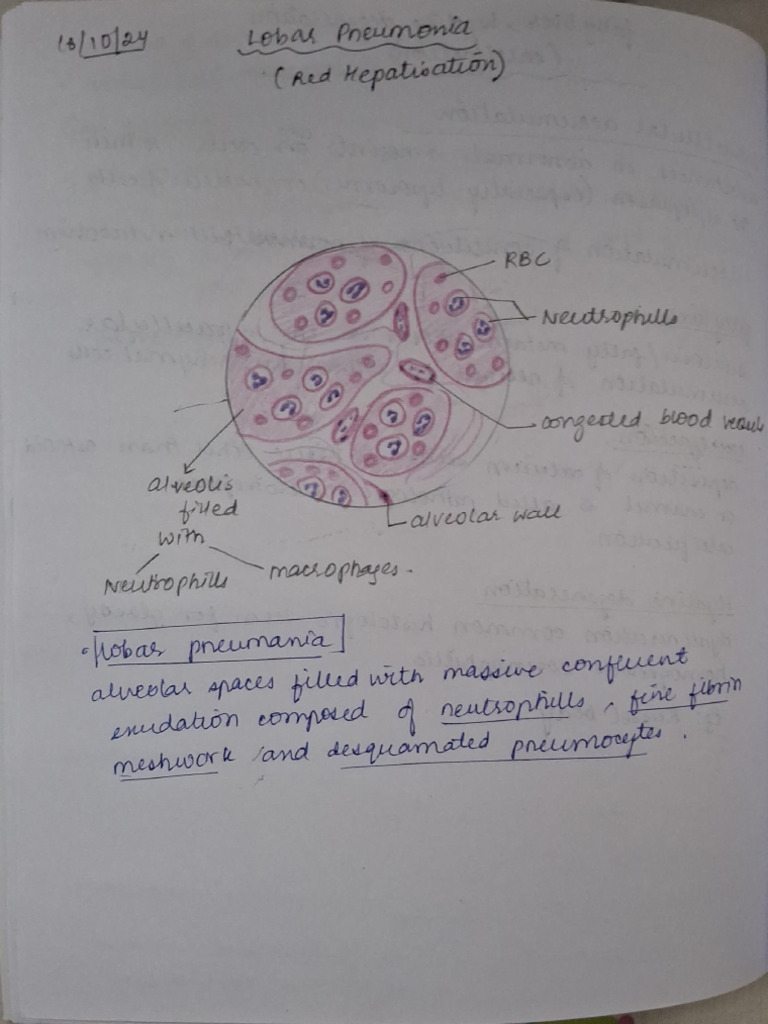 18/10/24
Lobar Pneumonia
(Red Hepatisation)
RBC
Neutrophills
congested blood vessels
alveolar wall
alveolis
filled
with
Neutrophills
macrophages.
Lobar pneumania
alveolar spaces filled with massive confluent
exudation composed of neutrophills, fine fibrin
meshwork and desquamated pneumocytes.